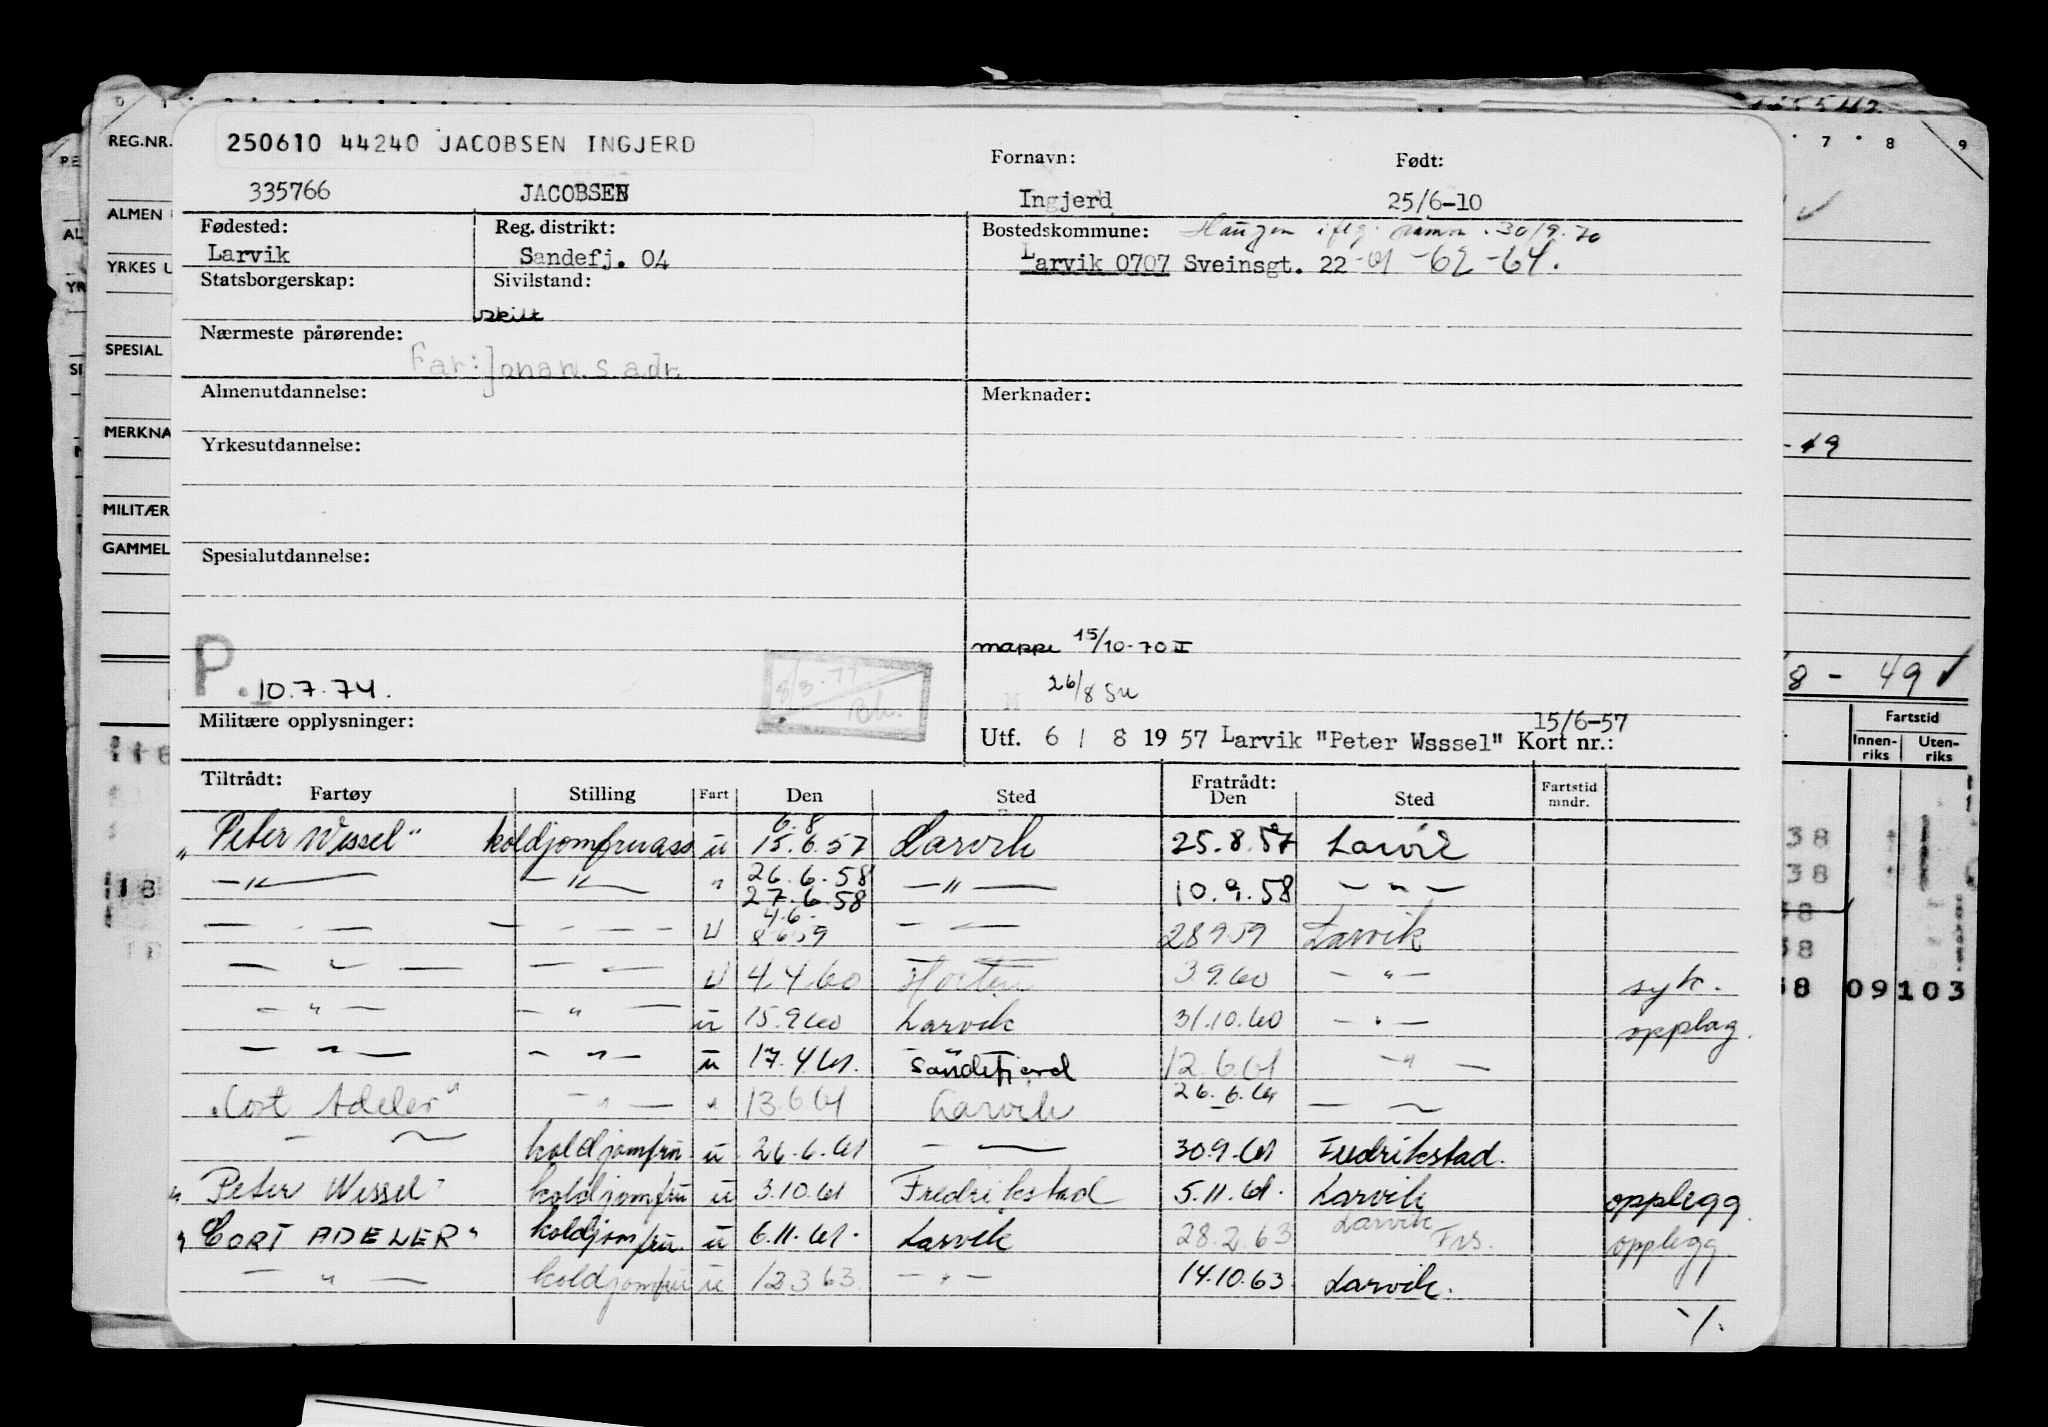 250610 44240 JACOBSEN INGJERD
Fornavn: Født:
335766 JACOBSEN Ingjerd 25/6-10
Fødested: Reg. distrikt: Bostedskommune: Haugen 30/9.70
Larvik Sandefj. 04 Larvik 0707 Sveinsgt. 22 -61 -62 -64.
Statsborgerskap: Sivilstand:
skilt
Nærmeste pårørende:
Far: Johan s.adr.
Almenutdannelse: Merknader:
Yrkesutdannelse:
Spesialutdannelse:
mappe 15/10-70 II
P. 10.7.74. 8/3-77 26/8 Su
Militære opplysninger: 15/6-57
Utf. 6 / 8 1957 Larvik "Peter Wsssel" Kort nr.:
Tiltrådt: Fratrådt:
Fartøy Stilling Fart Den Sted Den Sted Fartstid mndr.
6.8
"Peter Wessel" koldjomfruass u 15.6.57 Larvik 25.8.57 Larvik
26.6.58
—"— —"— " 27.6.58 —"— 10.9.58 — " —
4.6.
— - — — - - — U 8.6.59 — — 28.9.59 Larvik
— " — — — U 4.4.60 Horten 3.9.60 — " — syk.
— " — — " — u 15.9.60 Larvik 31.10.60 — " — opplag.
— " — — " — u 17.4.61. Sandefjord 12.6.61 — " —
"Cort Adeler" — " — " 13.6.61 Larvik 26.6.61 — " —
— " koldjomfru u 26.6.61 — — 30.9.61 Fredrikstad.
"Peter Wessel" koldjomfru u 3.10.61 Fredrikstad 5.11.61. Larvik opplegg.
"CORT ADELER" koldjomfru. u 6.11.61. Larvik 28.2.63 Larvik Frs. opplegg
— " — koldjomfru u 12.3.63. — " — 14.10.63. Larvik.
·/.
REG.NR.
ALMEN
YRKES U
SPESIAL
MERKNA
MILITÆR
GAMMEL
7 8 9
-49
/8 - 49 ✓
Fartstid
Innen-riks Uten-riks
38
38
38
38
58 09 103